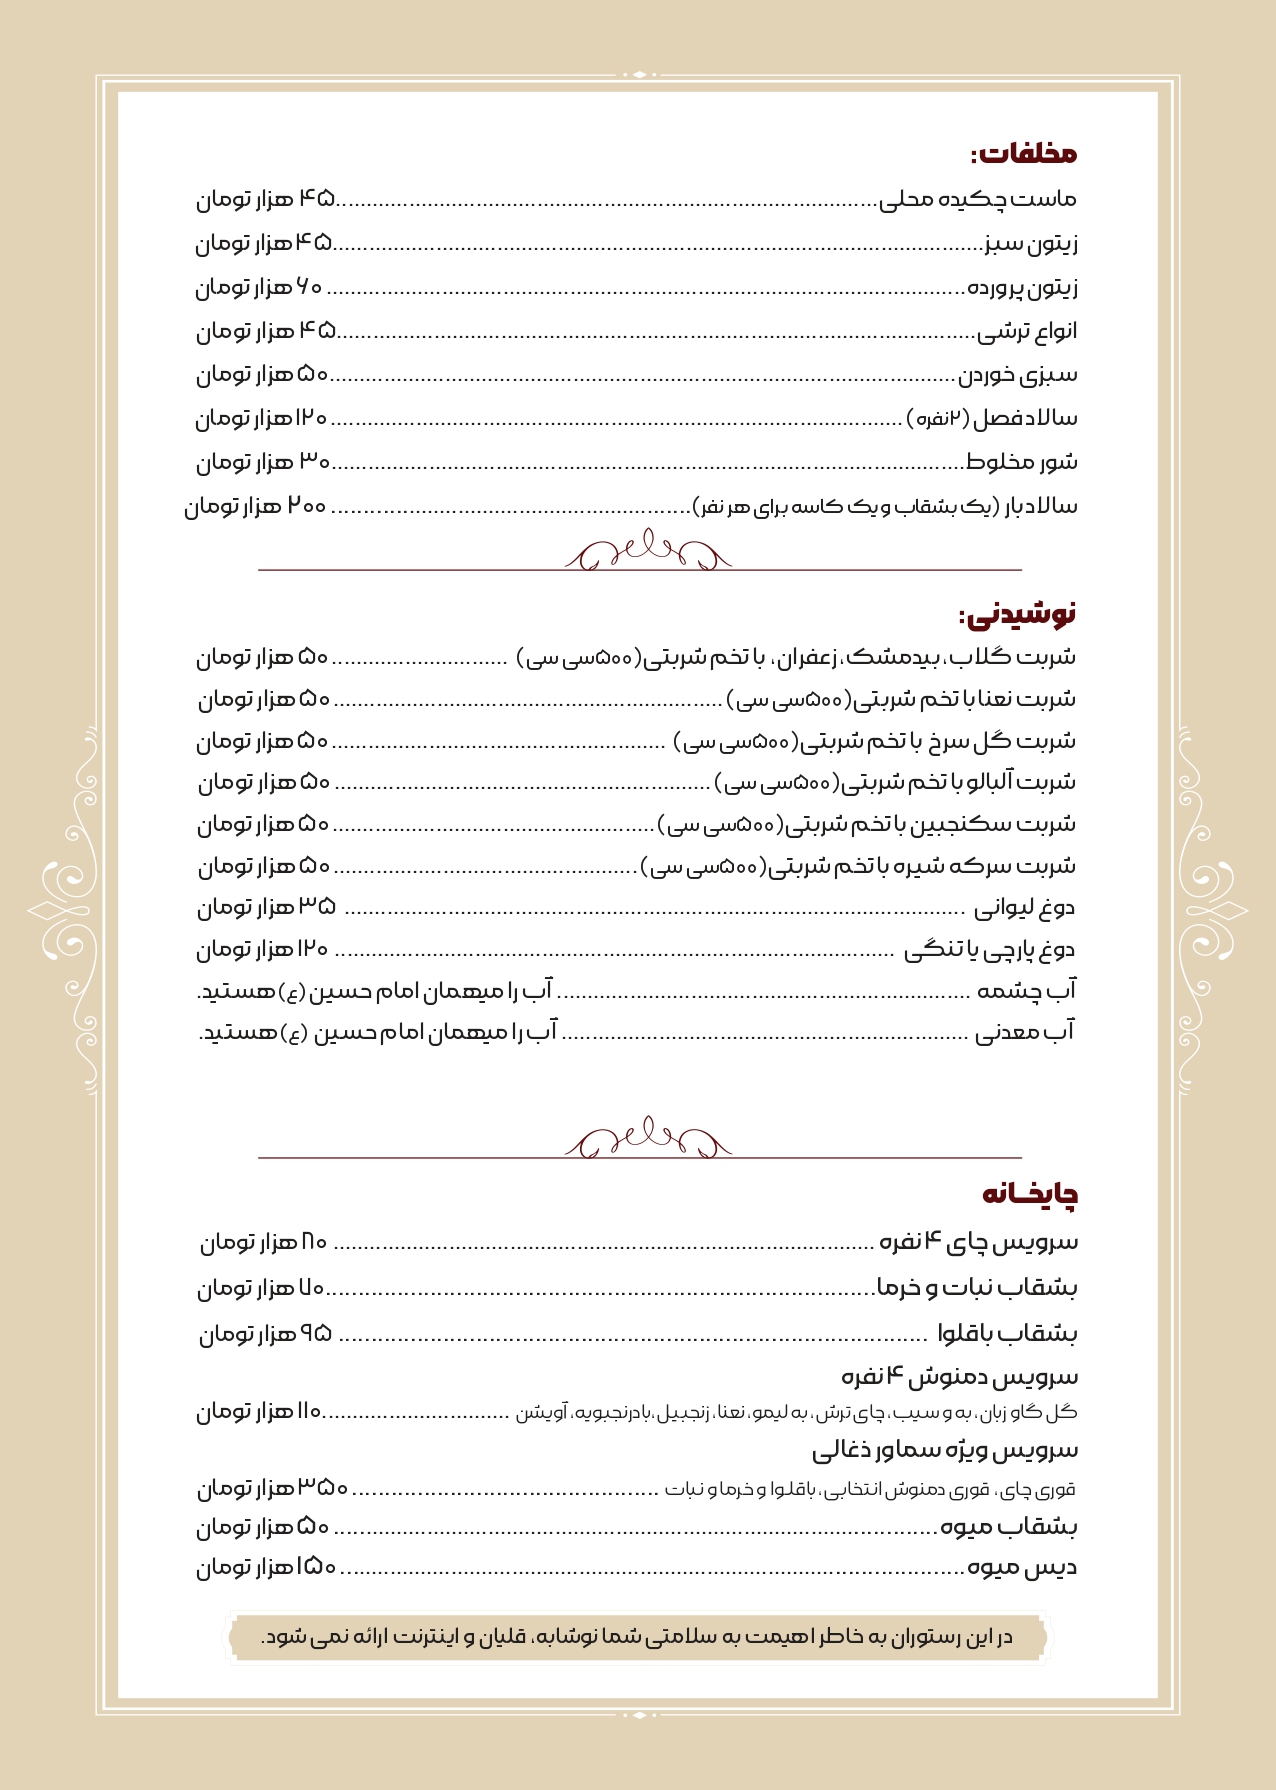 مخلفات:
ماست چکیده محلی..........................................................................................۴۵ هزار تومان
زیتون سبز............................................................................................................۴۵ هزار تومان
زیتون پرورده.......................................................................................................... ۶۰ هزار تومان
انواع ترشی..........................................................................................................۴۵ هزار تومان
سبزی خوردن........................................................................................................۵۰ هزار تومان
سالاد فصل (۲نفره) ............................................................................................... ۱۲۰ هزار تومان
شور مخلوط.........................................................................................................۳۰ هزار تومان
سالاد بار (یک بشقاب و یک کاسه برای هر نفر)......................................................... ۲۰۰ هزار تومان
نوشیدنی:
شربت گلاب، بیدمشک، زعفران، با تخم شربتی(۵۰۰سی سی) ............................. ۵۰ هزار تومان
شربت نعنا با تخم شربتی(۵۰۰سی سی) ................................................................ ۵۰ هزار تومان
شربت گل سرخ با تخم شربتی(۵۰۰سی سی) ....................................................... ۵۰ هزار تومان
شربت آلبالو با تخم شربتی(۵۰۰سی سی) .............................................................. ۵۰ هزار تومان
شربت سکنجبین با تخم شربتی(۵۰۰سی سی)..................................................... ۵۰ هزار تومان
شربت سرکه شیره با تخم شربتی(۵۰۰سی سی).................................................. ۵۰ هزار تومان
دوغ لیوانی ...................................................................................................... ۳۵ هزار تومان
دوغ پارچی یا تنگی ............................................................................................ ۱۲۰ هزار تومان
آب چشمه .................................................................... آب را میهمان امام حسین (ع) هستید.
آب معدنی ................................................................... آب را میهمان امام حسین (ع) هستید.
چایخـانه
سرویس چای ۴ نفره ......................................................................................... ۸۰ هزار تومان
بشقاب نبات و خرما...........................................................................................۷۰ هزار تومان
بشقاب باقلوا ................................................................................................. ۹۵ هزار تومان
سرویس دمنوش ۴ نفره
گل گاو زبان، به و سیب، چای ترش، به لیمو، نعنا، زنجبیل،بادرنجبویه، آویشن ...............................۱۱۰ هزار تومان
سرویس ویژه سماور ذغالی
قوری چای، قوری دمنوش انتخابی، باقلوا و خرما و نبات ................................................... ۳۵۰ هزار تومان
بشقاب میوه.................................................................................................... ۵۰ هزار تومان
دیس میوه....................................................................................................... ۱۵۰ هزار تومان
در این رستوران به خاطر اهیمت به سلامتی شما نوشابه، قلیان و اینترنت ارائه نمی شود.